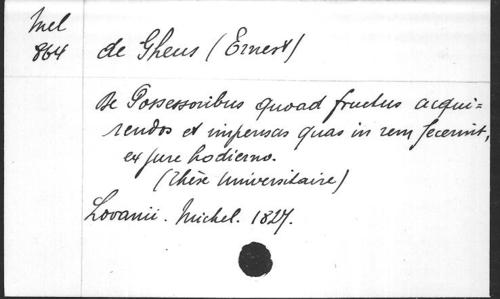 Mel
864
de Gheus (Ernest)
De Possessoribus quoad fructus acqui-
rendos et impensas quas in rem fecerint,
ex jure hodierno.
(Thèse Universitaire)
Lovanii. Michel. 1827.